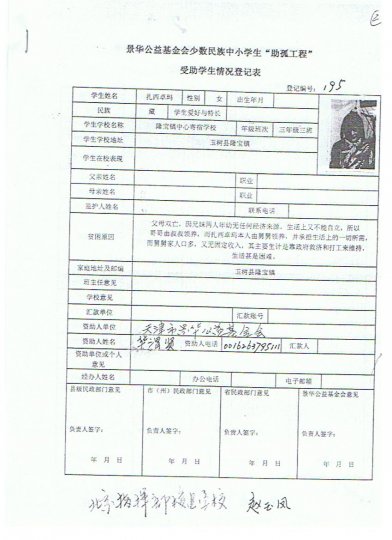 景华公益基金会少数民族中小学生“助孤工程”
受助学生情况登记表
登记编号：195
学生姓名 扎西卓玛 性别 女 出生年月
民族 藏 学生爱好与特长
学生学校名称 隆宝镇中心寄宿学校 年级班次 三年级三班
学生学校地址 玉树县隆宝镇
学生在校表现
父亲姓名 职业
母亲姓名 职业
监护人姓名 联系电话
贫困原因
父母双亡，因兄妹两人年幼无任何经济来源，生活上又不能自立，所以
哥哥由叔叔领养，而扎西卓玛本人由舅舅领养，并承担生活上的一切所需，
而舅舅家人口多，又无固定收入，其主要生计是靠政府救济和打工来维持，
生活甚是困难。
家庭地址及邮编 玉树县隆宝镇
班主任意见
学校意见
汇款单位 汇款账号
资助人单位 天津市景华公益基金会
资助人姓名 华渭贤 资助人电话 汇款人
资助单位或个人
意见
经办人姓名 办公电话 电子邮箱
县级民政部门意见 市（州）民政部门意见 省民政部门意见 景华公益基金会意见
负责人签字： 负责人签字： 负责人签字： 负责人签字：
年 月 日 年 月 日 年 月 日 年 月 日
北京 学校 赵玉凤